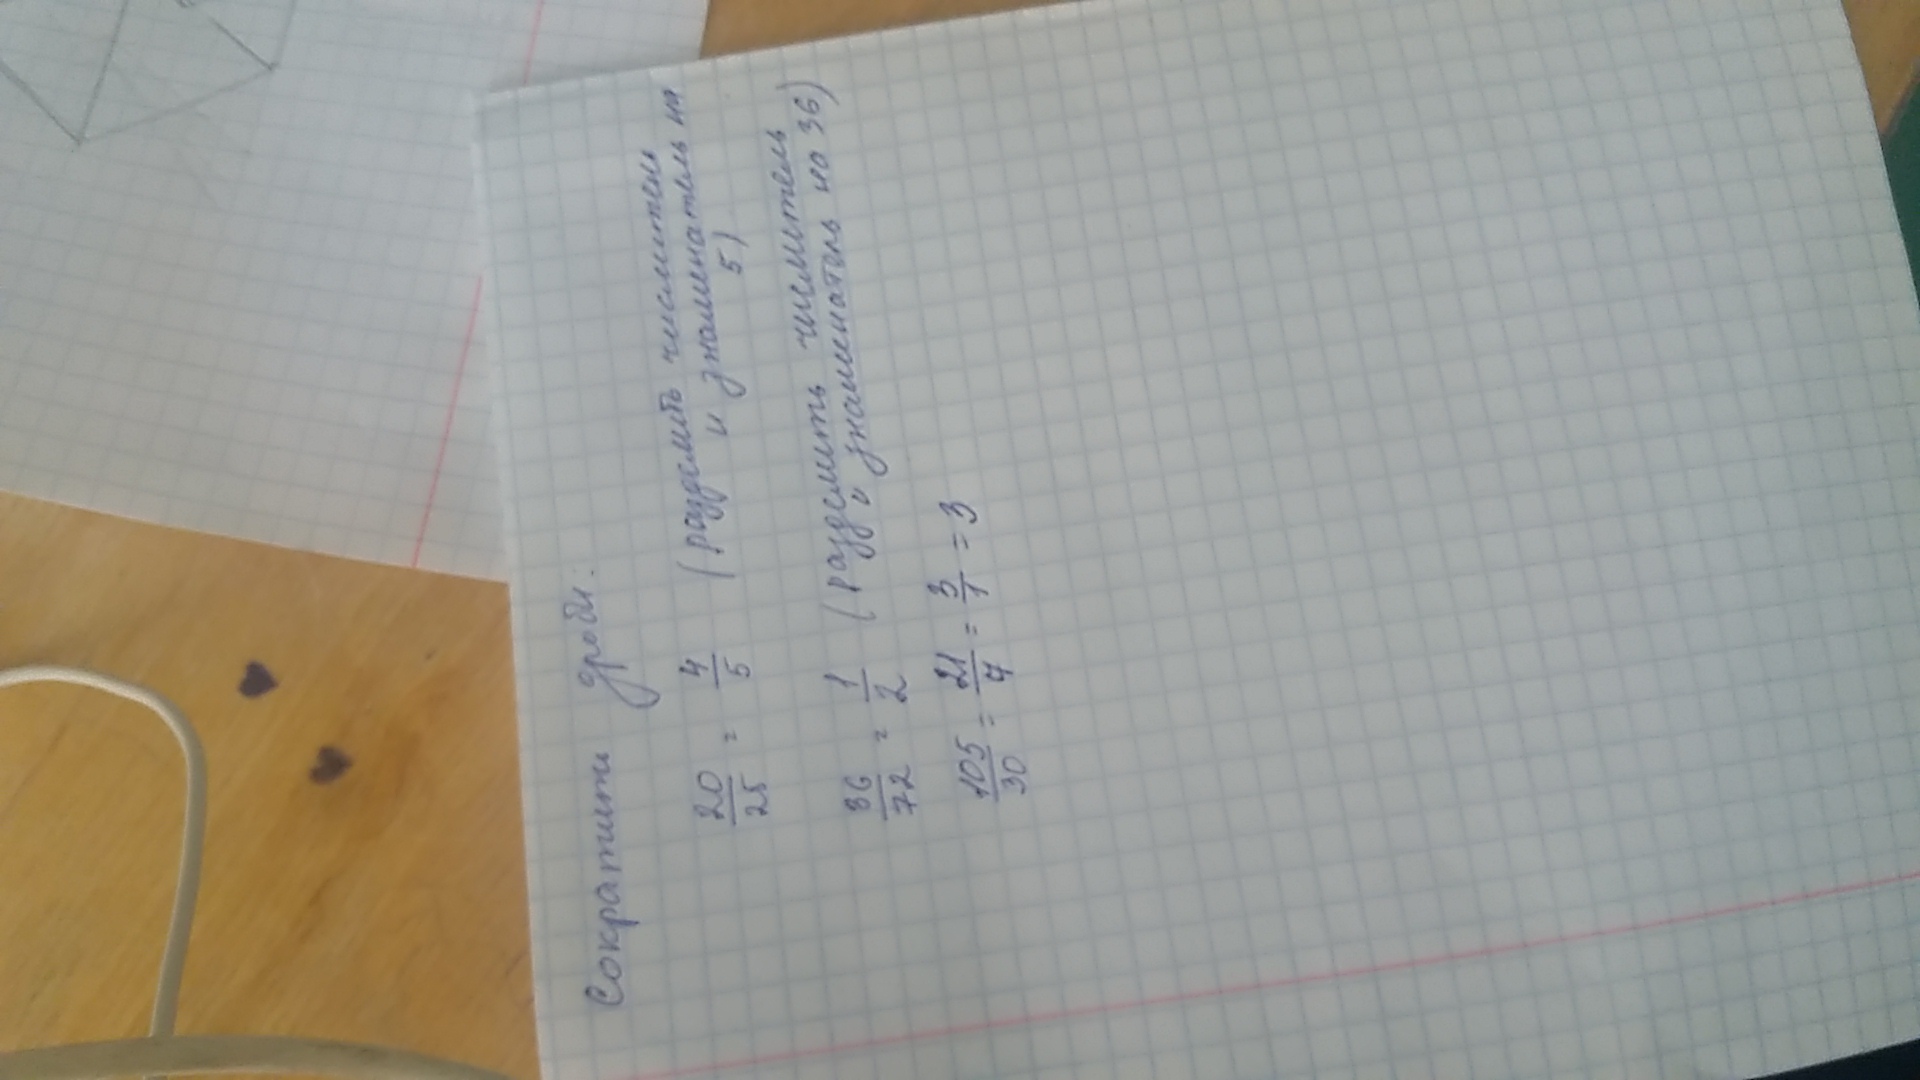 Сократить дроби:
20/25 = 4/5 (разделить числитель
и знаменатель на
5)
36/72 = 1/2 (разделить числитель
и знаменатель на 36)
105/30 = 21/7 = 3/1 = 3